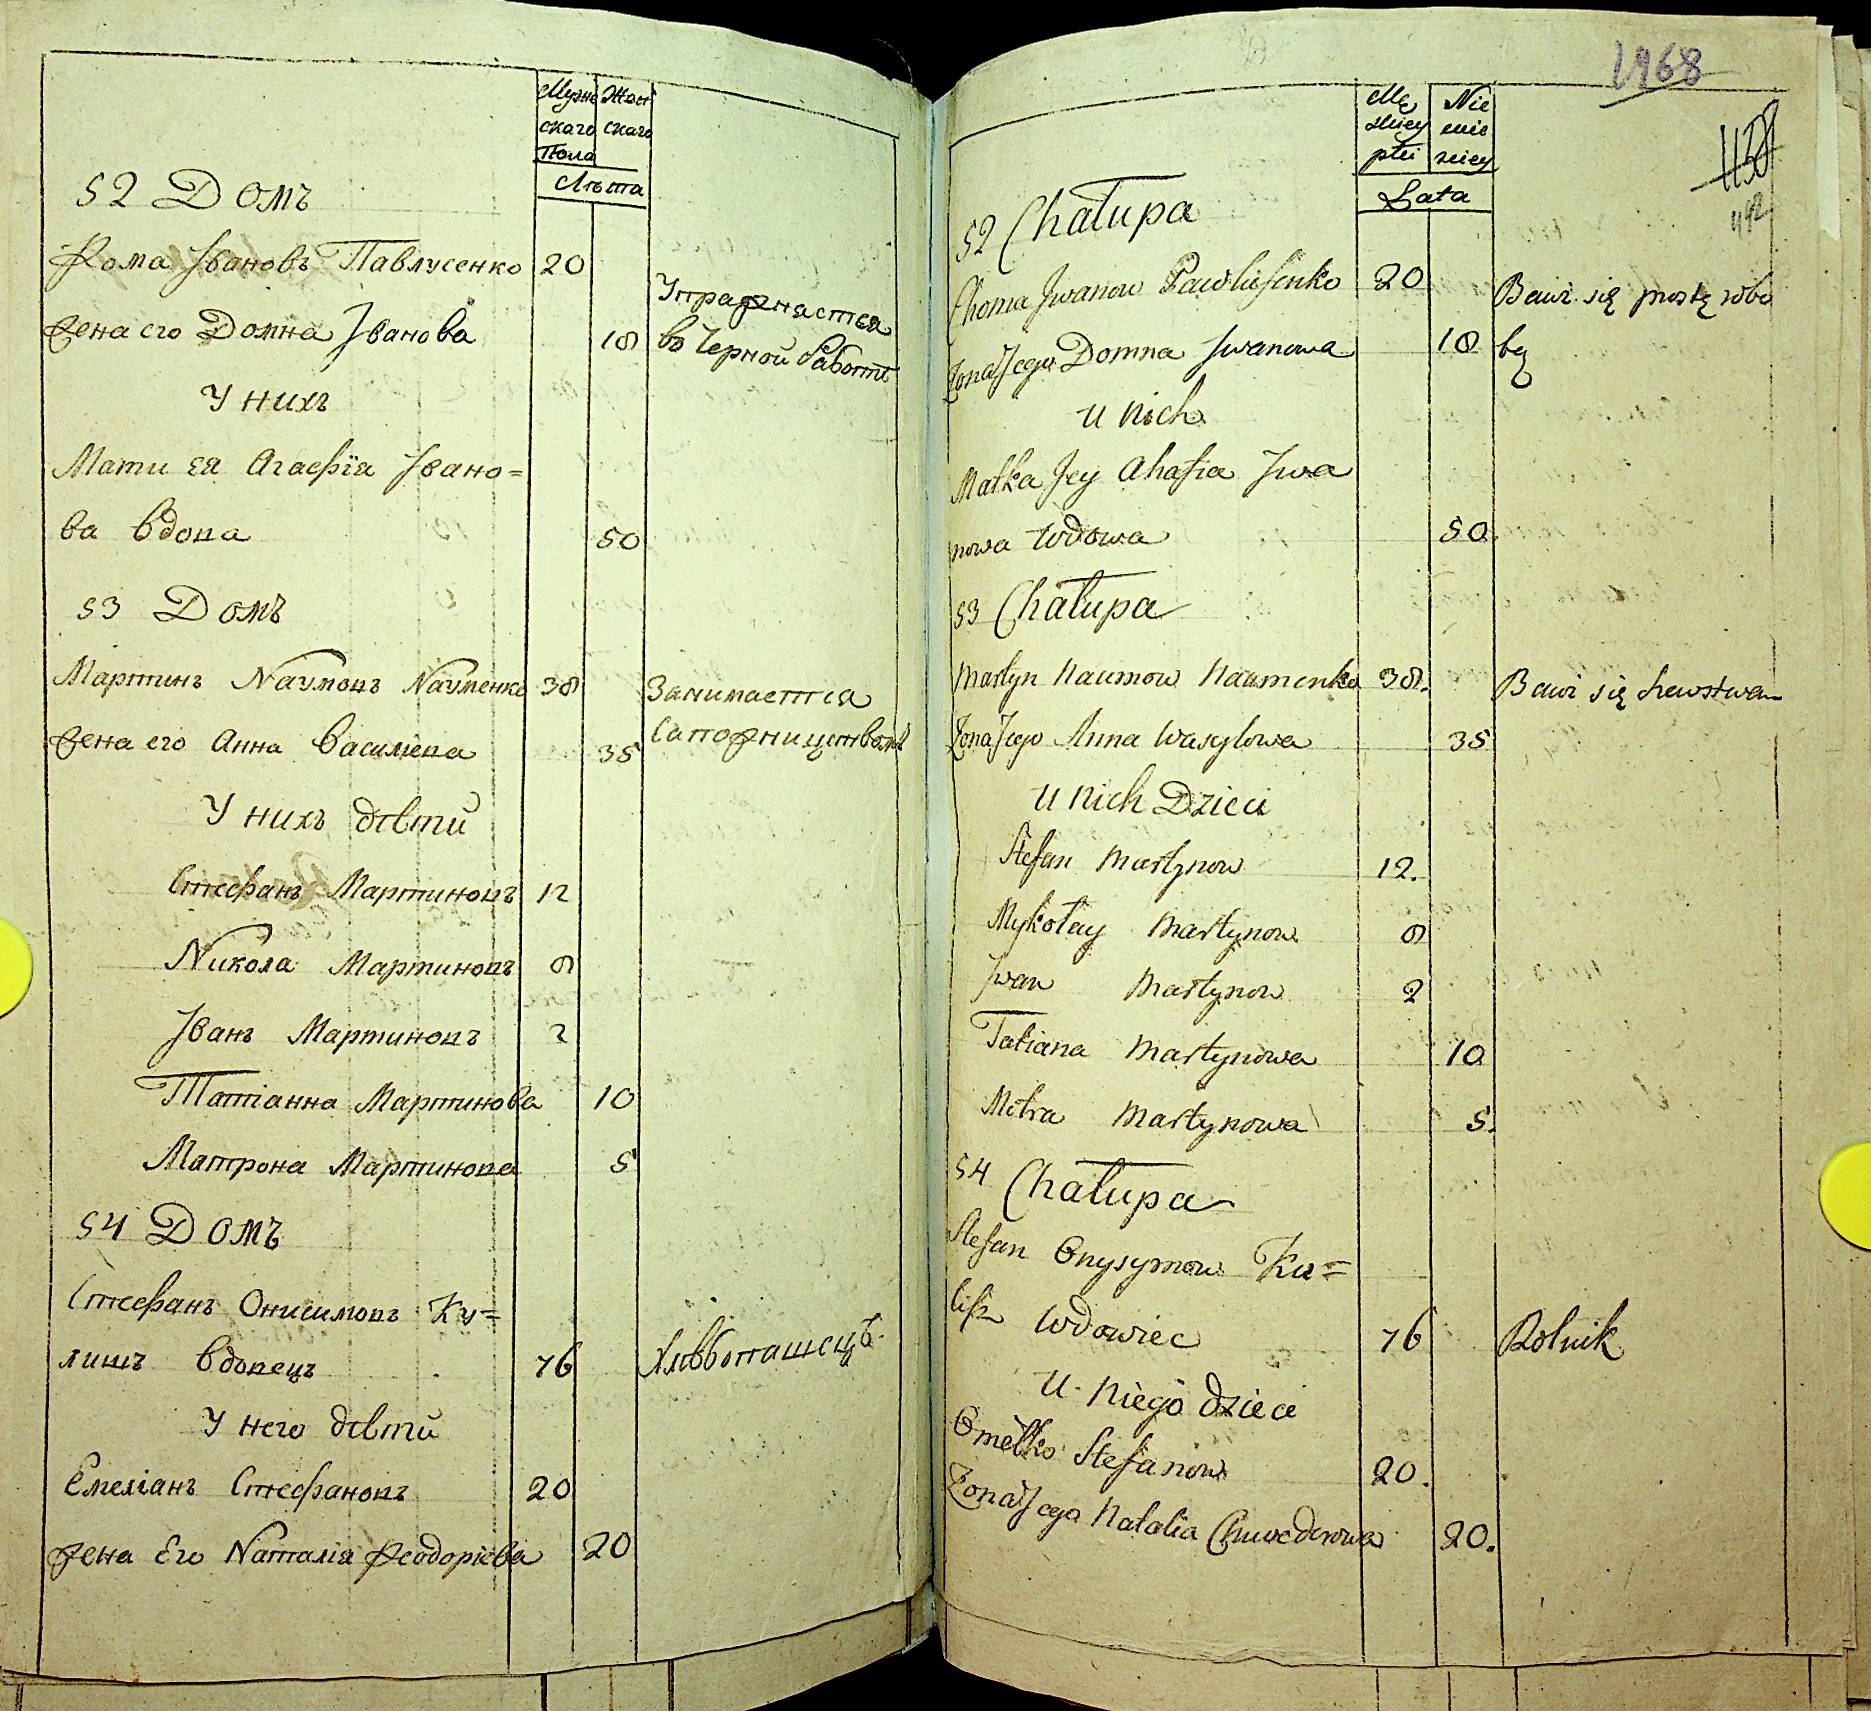 Мужескаго Пола
Женскаго
Лѣта
52 Домъ
Ѳома Івановъ Павлусенко 20
Упражняется
Жена его Домна Іванова 18 въ Черной работѣ
У нихъ
Мати ея Агафїа Івано=
ва вдова 50
53 Домъ
Мартинъ Наумовъ Науменко 38 Занимается
Жена его Анна Василева 35 Сапожництвомъ
У нихъ дѣти
Стефанъ Мартиновъ 12
Никола Мартиновъ 8
Іванъ Мартиновъ 2
Татіанна Мартинова 10
Матрона Мартинова 5
54 Домъ
Стефанъ Онисимовъ Ку=
лишъ вдовецъ 76 Хлѣбопашецъ
У него дѣти
Емеліанъ Стефановъ 20
Жена Его Наталія Ѳеодорієва 20
1968
1138
442
Mę
Nie
płci
Lata
52 Chałupa
Choma Jwanow Pawlusenko 20 Bawi się prostę robo
Żona Jego Domna Jwanowa 18 bę
u nich
Matka Jey Ahafia Jwa
nowa wdowa 50
53 Chałupa
Martyn Naumow Naumenko 38. Bawi się szewstwem
Żona Jego Anna Wasylowa 35
u nich Dzieci
Stefan Martynow 12.
Mykołay Martynow 8
Jwan Martynow 2
Tatiana Martynowa 10
Motra Martynowa 5.
54 Chałupa
Stefan Onysymow Ku=
lisz wdowiec 76 Rolnik
u niego dzieci
Omelko Stefanow 20.
Żona Jego Natalia Chwedorowa 20.